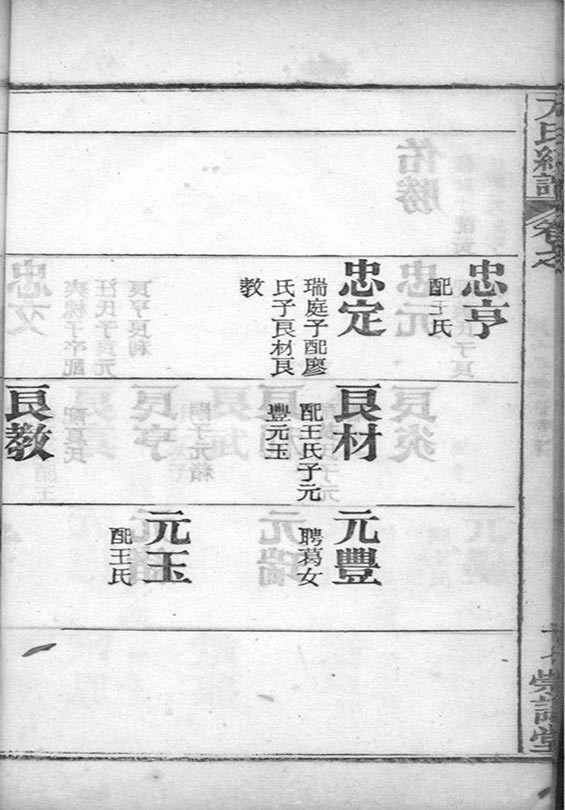 卷之
忠亨
配王氏
忠定
瑞庭子配廖
氏子良材良
教
良材
配王氏子元
豐元玉
良教
元豐
聘葛女
元玉
配王氏